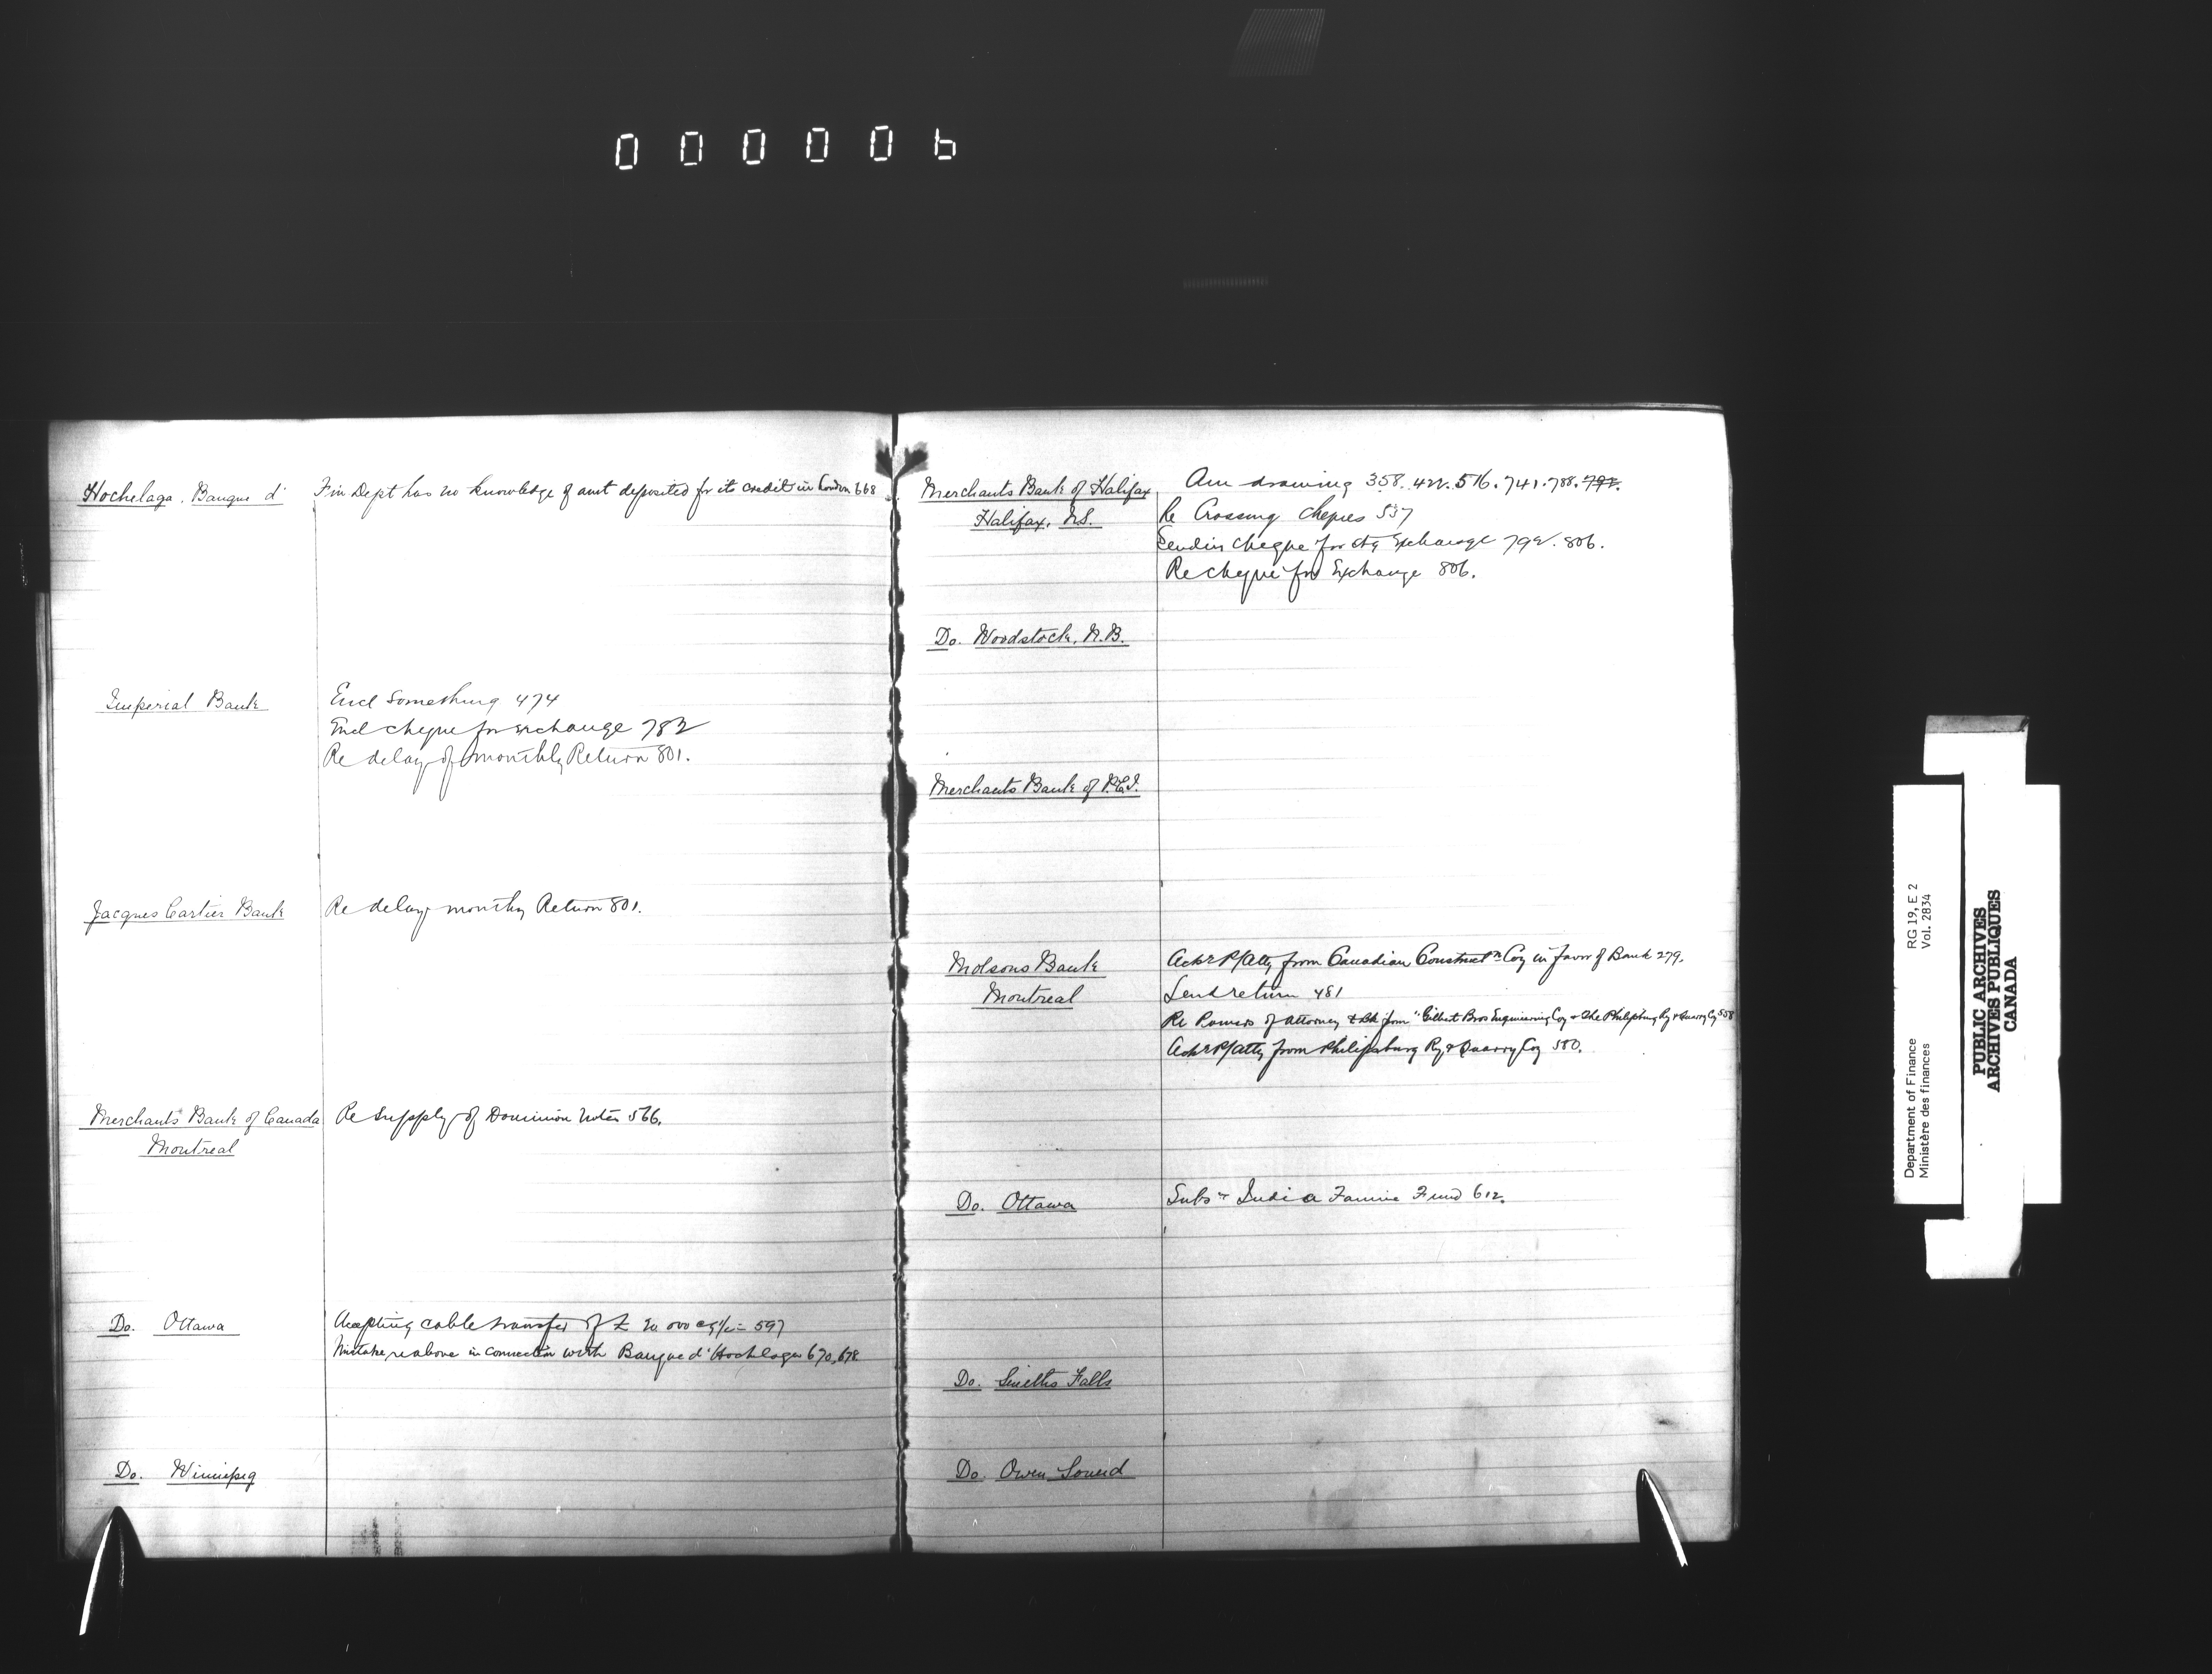 000006
Hochelaga, Banque d'
Fin Dept has no knowledge of amt deposited for its credit in London 668
Imperial Bank
Encl something 474
Encl cheque for exchange 782
Re delay of monthly Return 801.
Jacques Cartier Bank
Re delay monthly Return 801.
Merchants Bank of Canada
Montreal
Re supply of Dominion notes 566.
Do. Ottawa
Accepting cable transfer of £ 20 000 597
Mistake re above in connection with Banque d'Hochelaga 670, 678
Do. Winnipeg
Merchants Bank of Halifax
Halifax, N.S.
Am drawing 358. 422. 516. 741. 788. 792.
Re Crossing cheques 537
Sending cheque for Exchange 792. 806.
Re cheque for Exchange 806.
Do. Woodstock, N.B.
Merchants Bank of P.E.I.
Molsons Bank
Montreal
Ack P/Atty from Canadian Construct n Coy in favor of Bank 279.
Send return 481
Re Powers of attorney to Bk from "Gilbert Bros Engineering Coy & The Philipsburg Ry & Quarry Cy 558
Ack P/Atty from Philipsburg Ry & Quarry Coy 580.
Do. Ottawa
Subs n India Famine Fund 612.
Do. Smiths Falls
Do. Owen Sound
Department of Finance
Ministère des finances
RG 19, E 2
Vol. 2834
PUBLIC ARCHIVES
ARCHIVES PUBLIQUES
CANADA